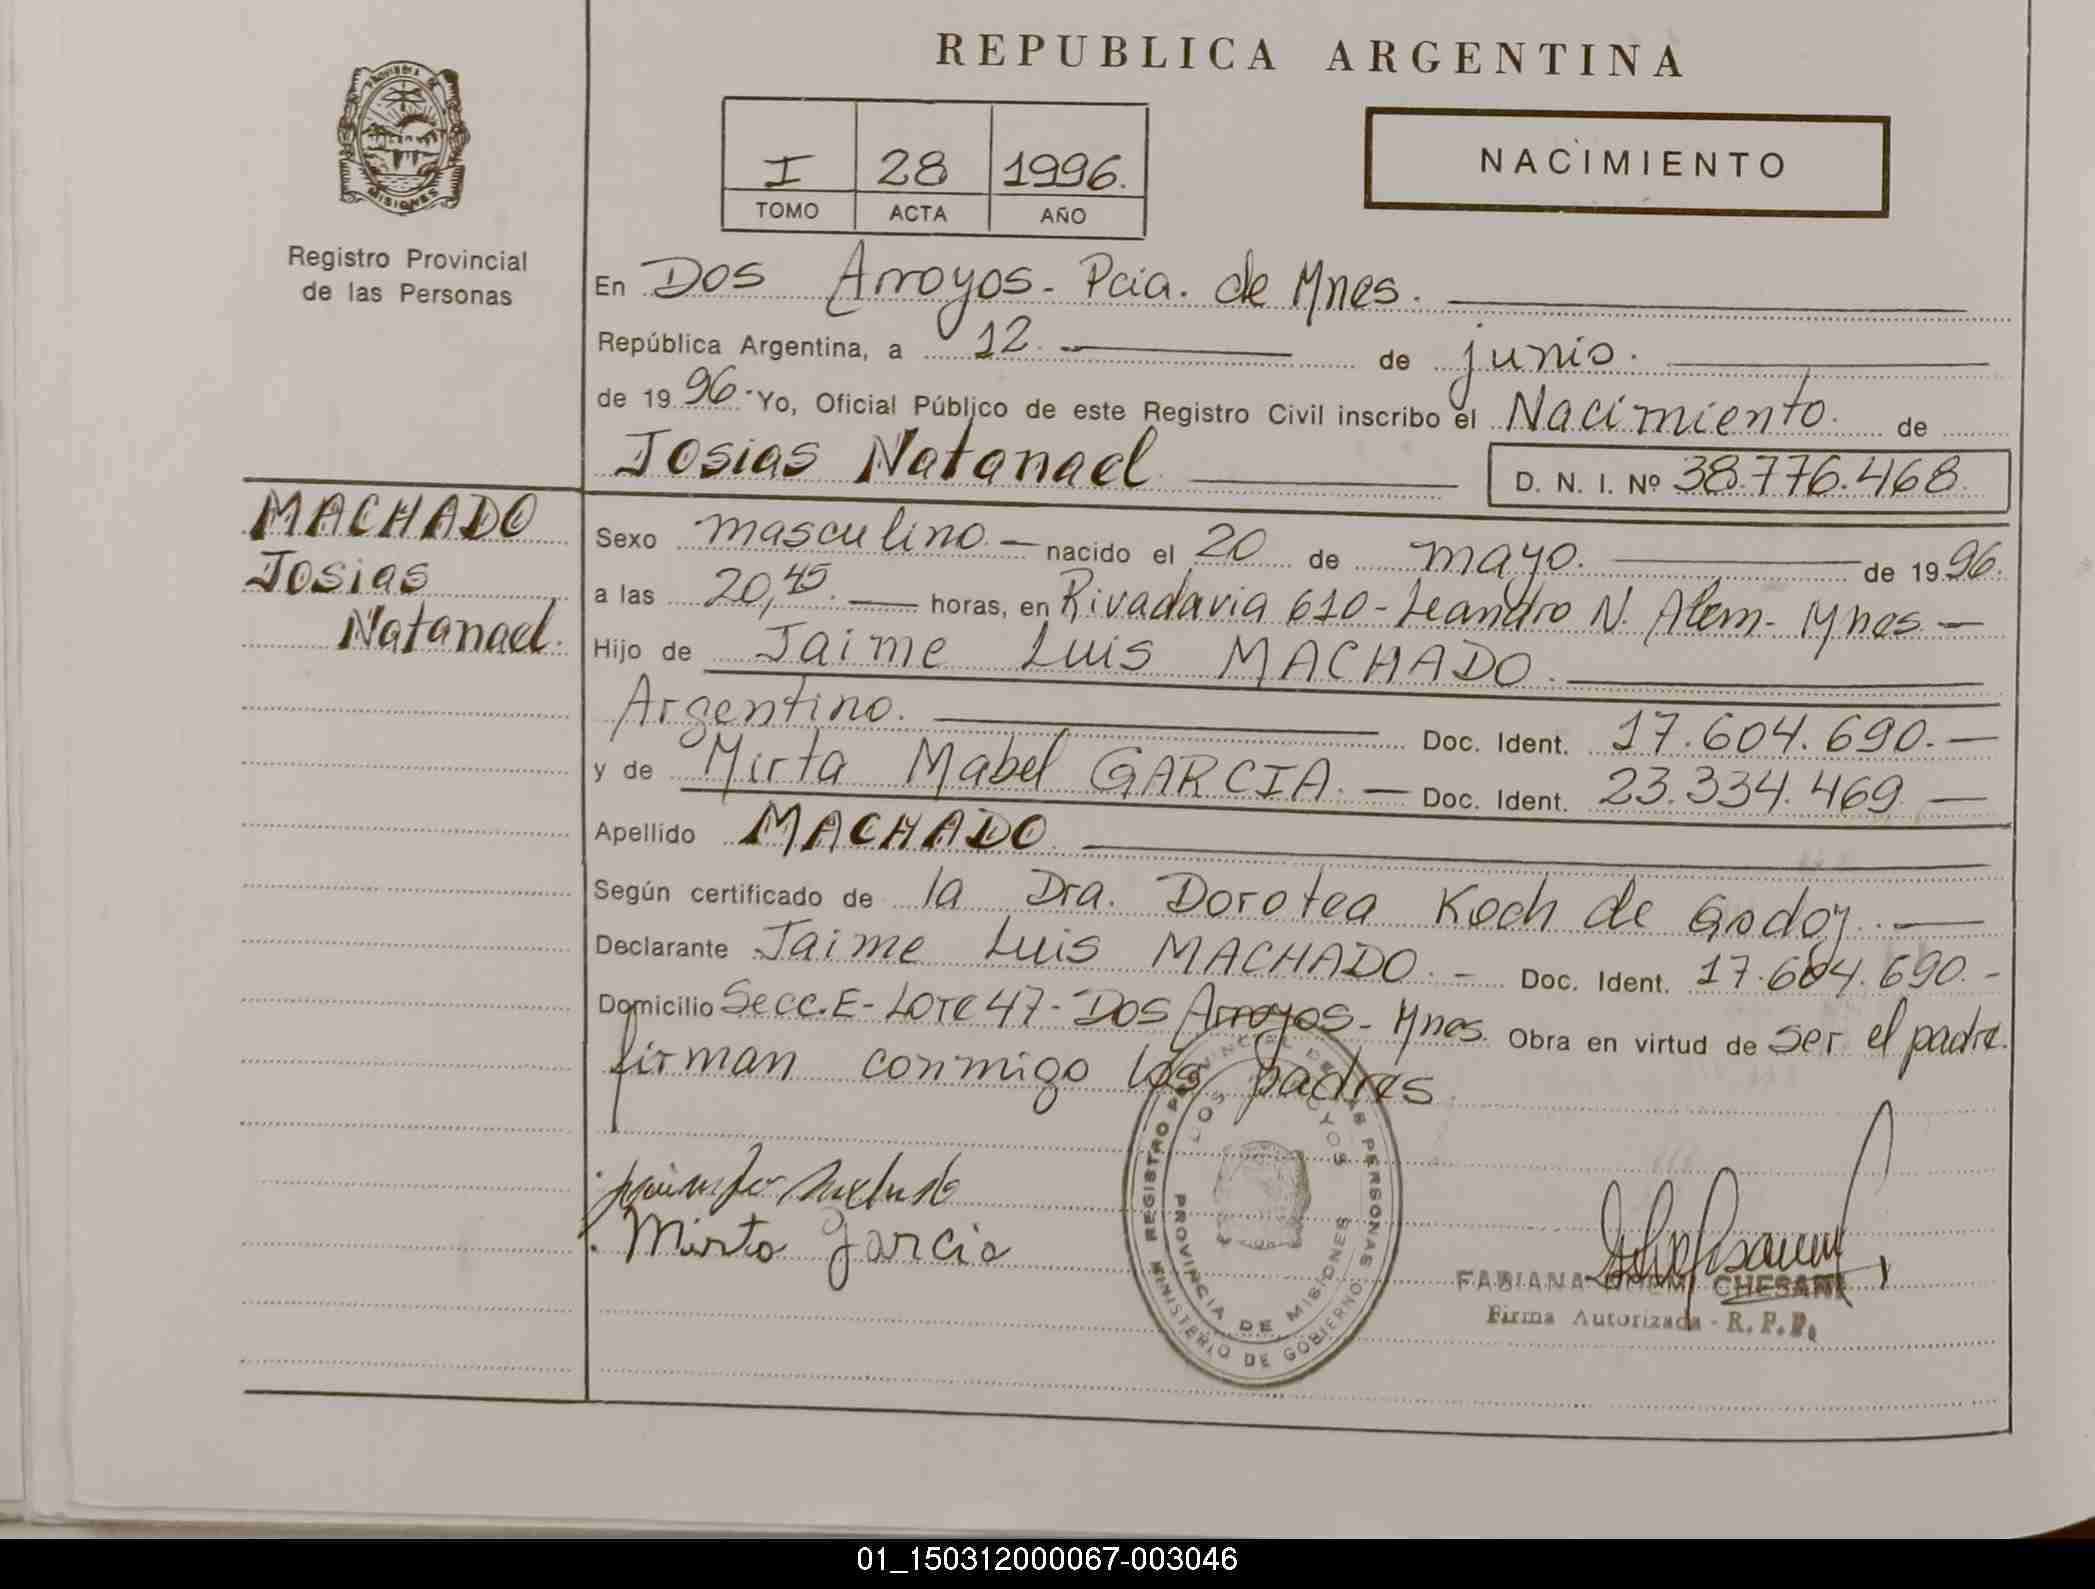 REPUBLICA ARGENTINA
PROVINCIA DE MISIONES
Registro Provincial
de las Personas
I 28 1996.
TOMO ACTA AÑO
NACIMIENTO
En Dos Arroyos - Pcia. de Mnes.
República Argentina, a 12. de junio.
de 19 96 - Yo, Oficial Público de este Registro Civil inscribo el Nacimiento. de
Josias Natanael D. N. I. Nº 38.776.468.
MACHADO
Josias
Natanael.
Sexo masculino. — nacido el 20 de mayo. de 19 96.
a las 20,45. — horas, en Rivadavia 610 - Leandro N. Alem - Mnes. —
Hijo de Jaime Luis MACHADO.
Argentino. Doc. Ident. 17.604.690. —
y de Mirta Mabel GARCIA. — Doc. Ident. 23.334.469 —
Apellido MACHADO.
Según certificado de la Dra. Dorotea Koch de Godoy. —
Declarante Jaime Luis MACHADO. - Doc. Ident. 17.604.690. -
Domicilio Secc. E - Lote 47 - Dos Arroyos - Mnes. Obra en virtud de ser el padre.
firman conmigo los padres.
Mirta Garcia
REGISTRO PROVINCIAL DE LAS PERSONAS
DOS ARROYOS
PROVINCIA DE MISIONES
MINISTERIO DE GOBIERNO
FABIANA NOEMI CHESANI
Firma Autorizada - R. P. P.
01_150312000067-003046